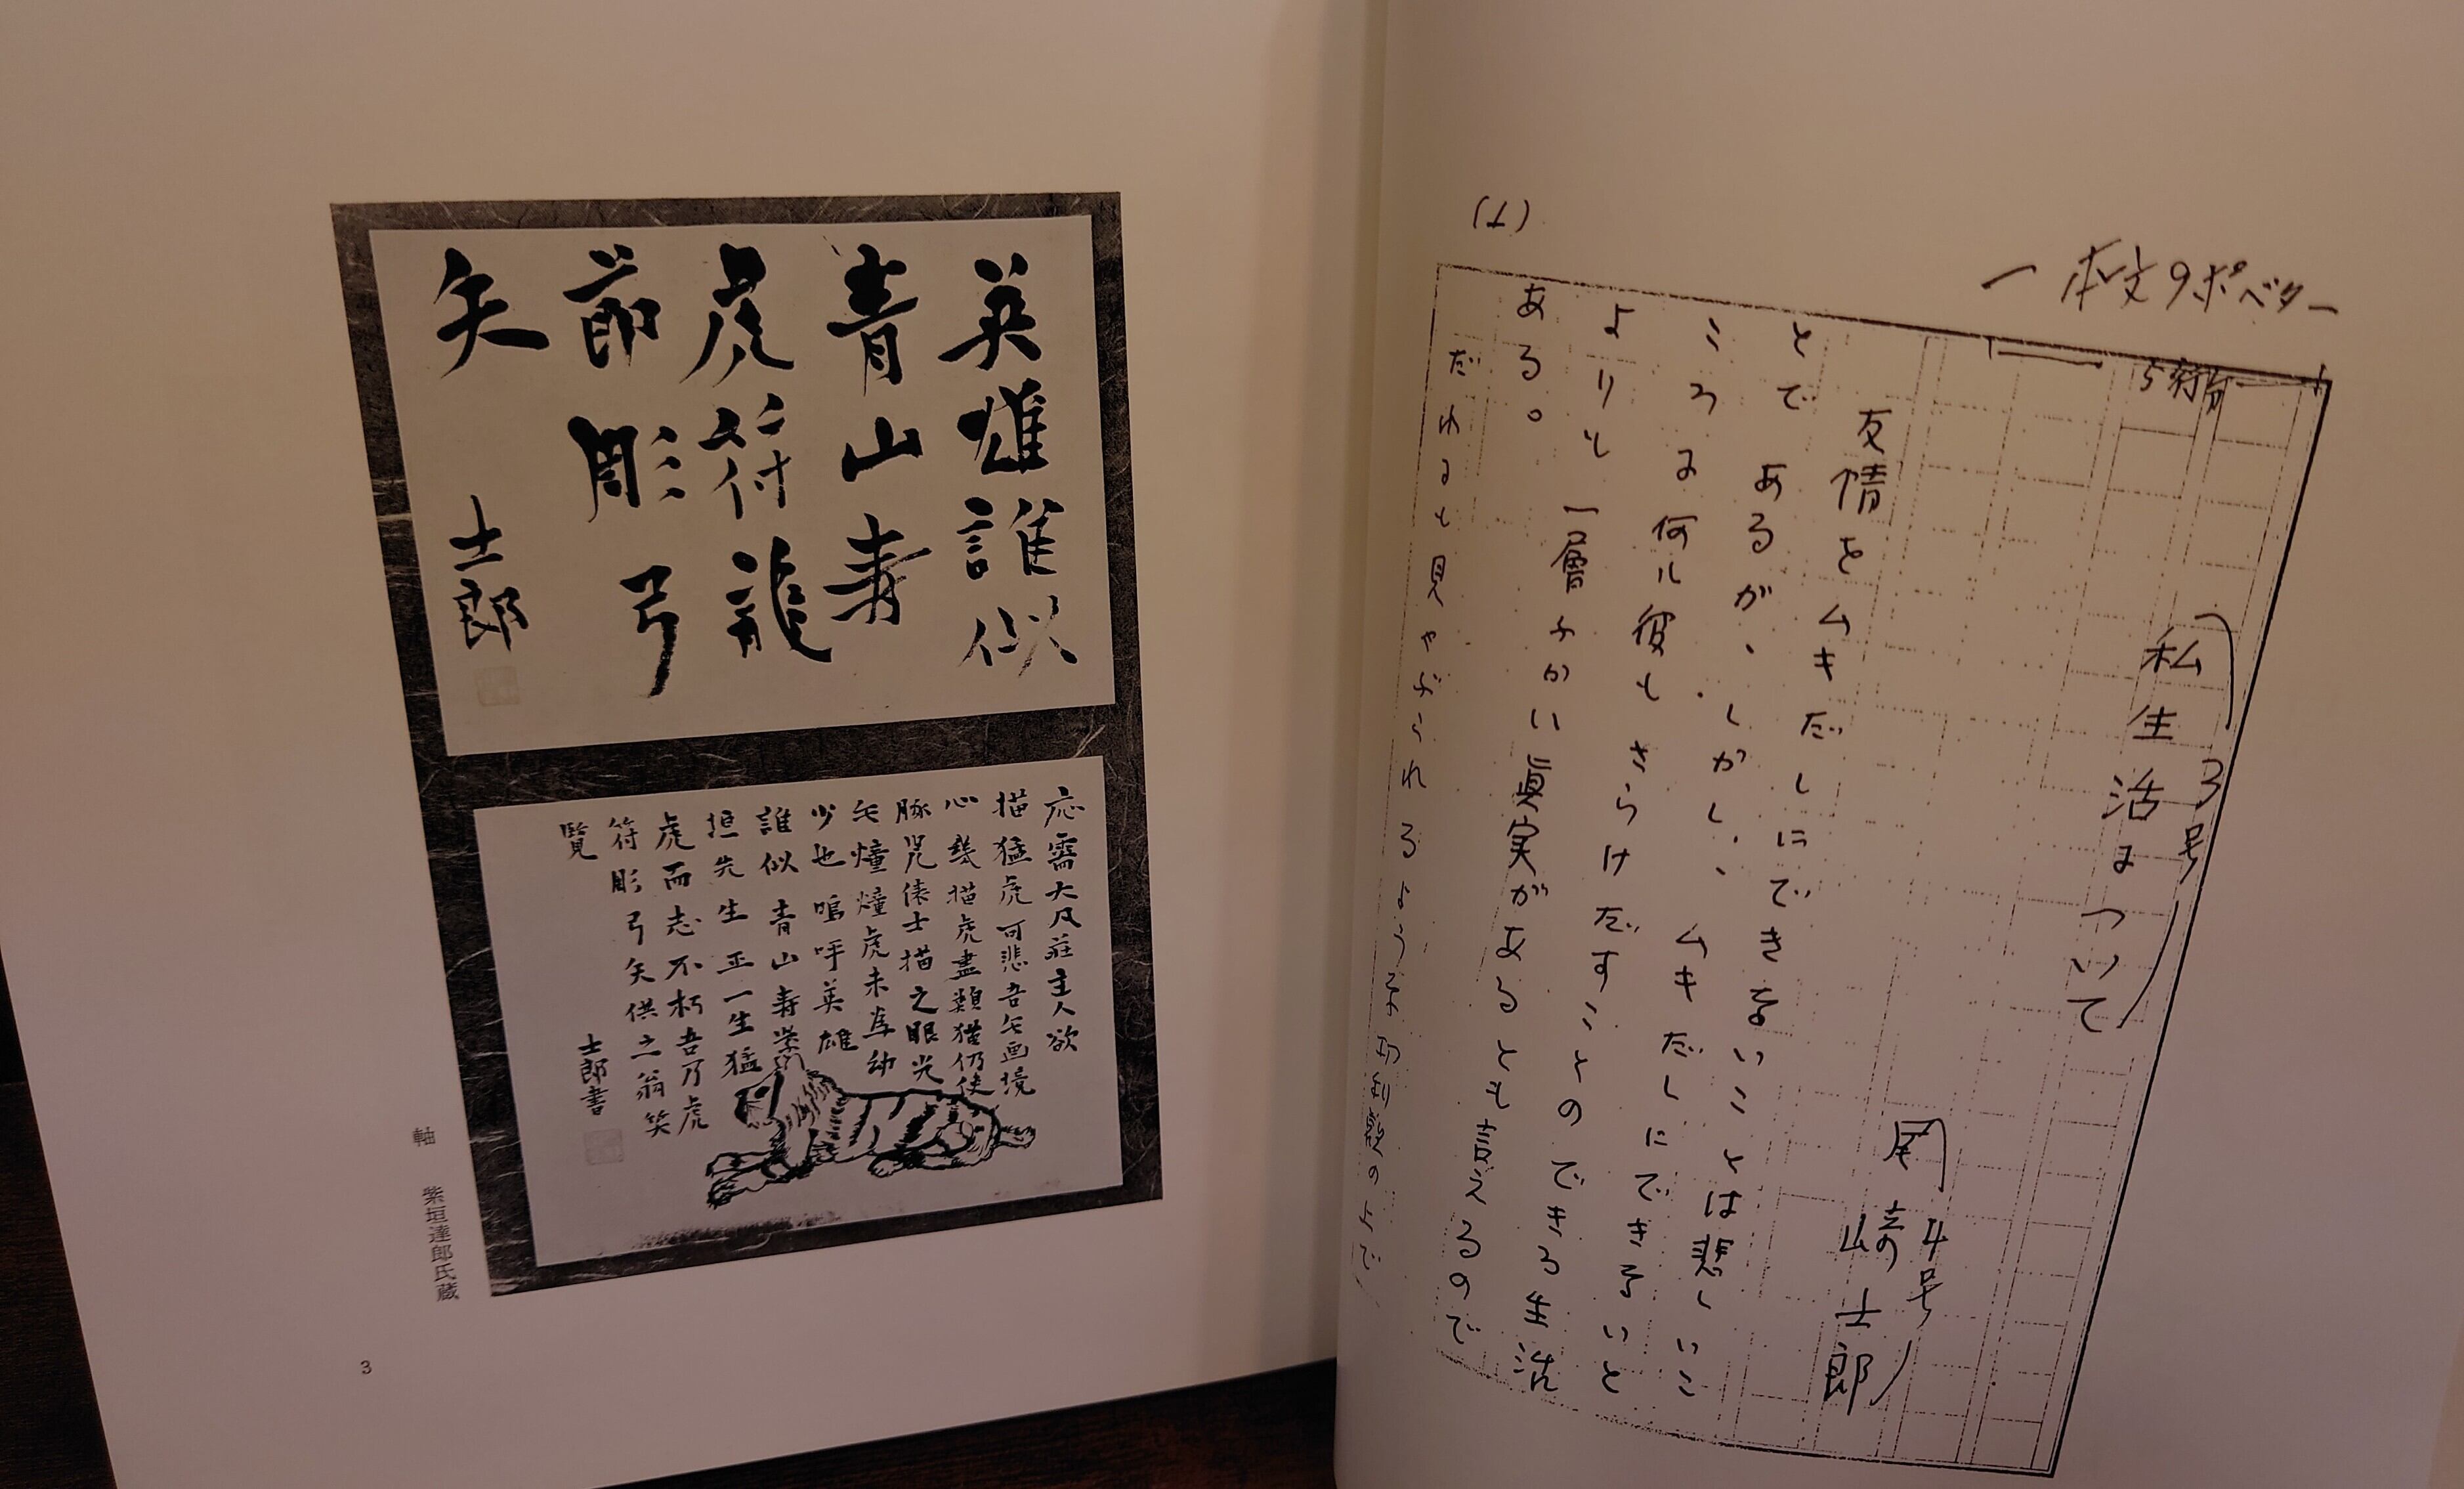 英雄誰似
青山寿
虎符龍
節彫弓
矢
士郎
応需大凡荘主人欲
描猛虎可悲吾乏画境
心幾描虎盡類猫仍使
豚児傣士描之眼光
乏憧憧虎未為幼
少也嗚呼英雄
誰似青山寿紫
垣先生正一生猛
虎而志不朽吾乃虎
符彫弓矢供之翁笑
覧
士郎書
軸 紫垣達郎氏蔵
3
(1)
一本文9ポベター
5行分
3号
私生活について
4号
尾崎士郎
友情をムキだしにできないことは悲しいこ
とであるが、しかし、ムキだしにできないと
ころに何ル彼もさらけだすことのできる生活
よりも一層ふかい眞実があるとも言えるので
ある。
だれにも見やぶられるような